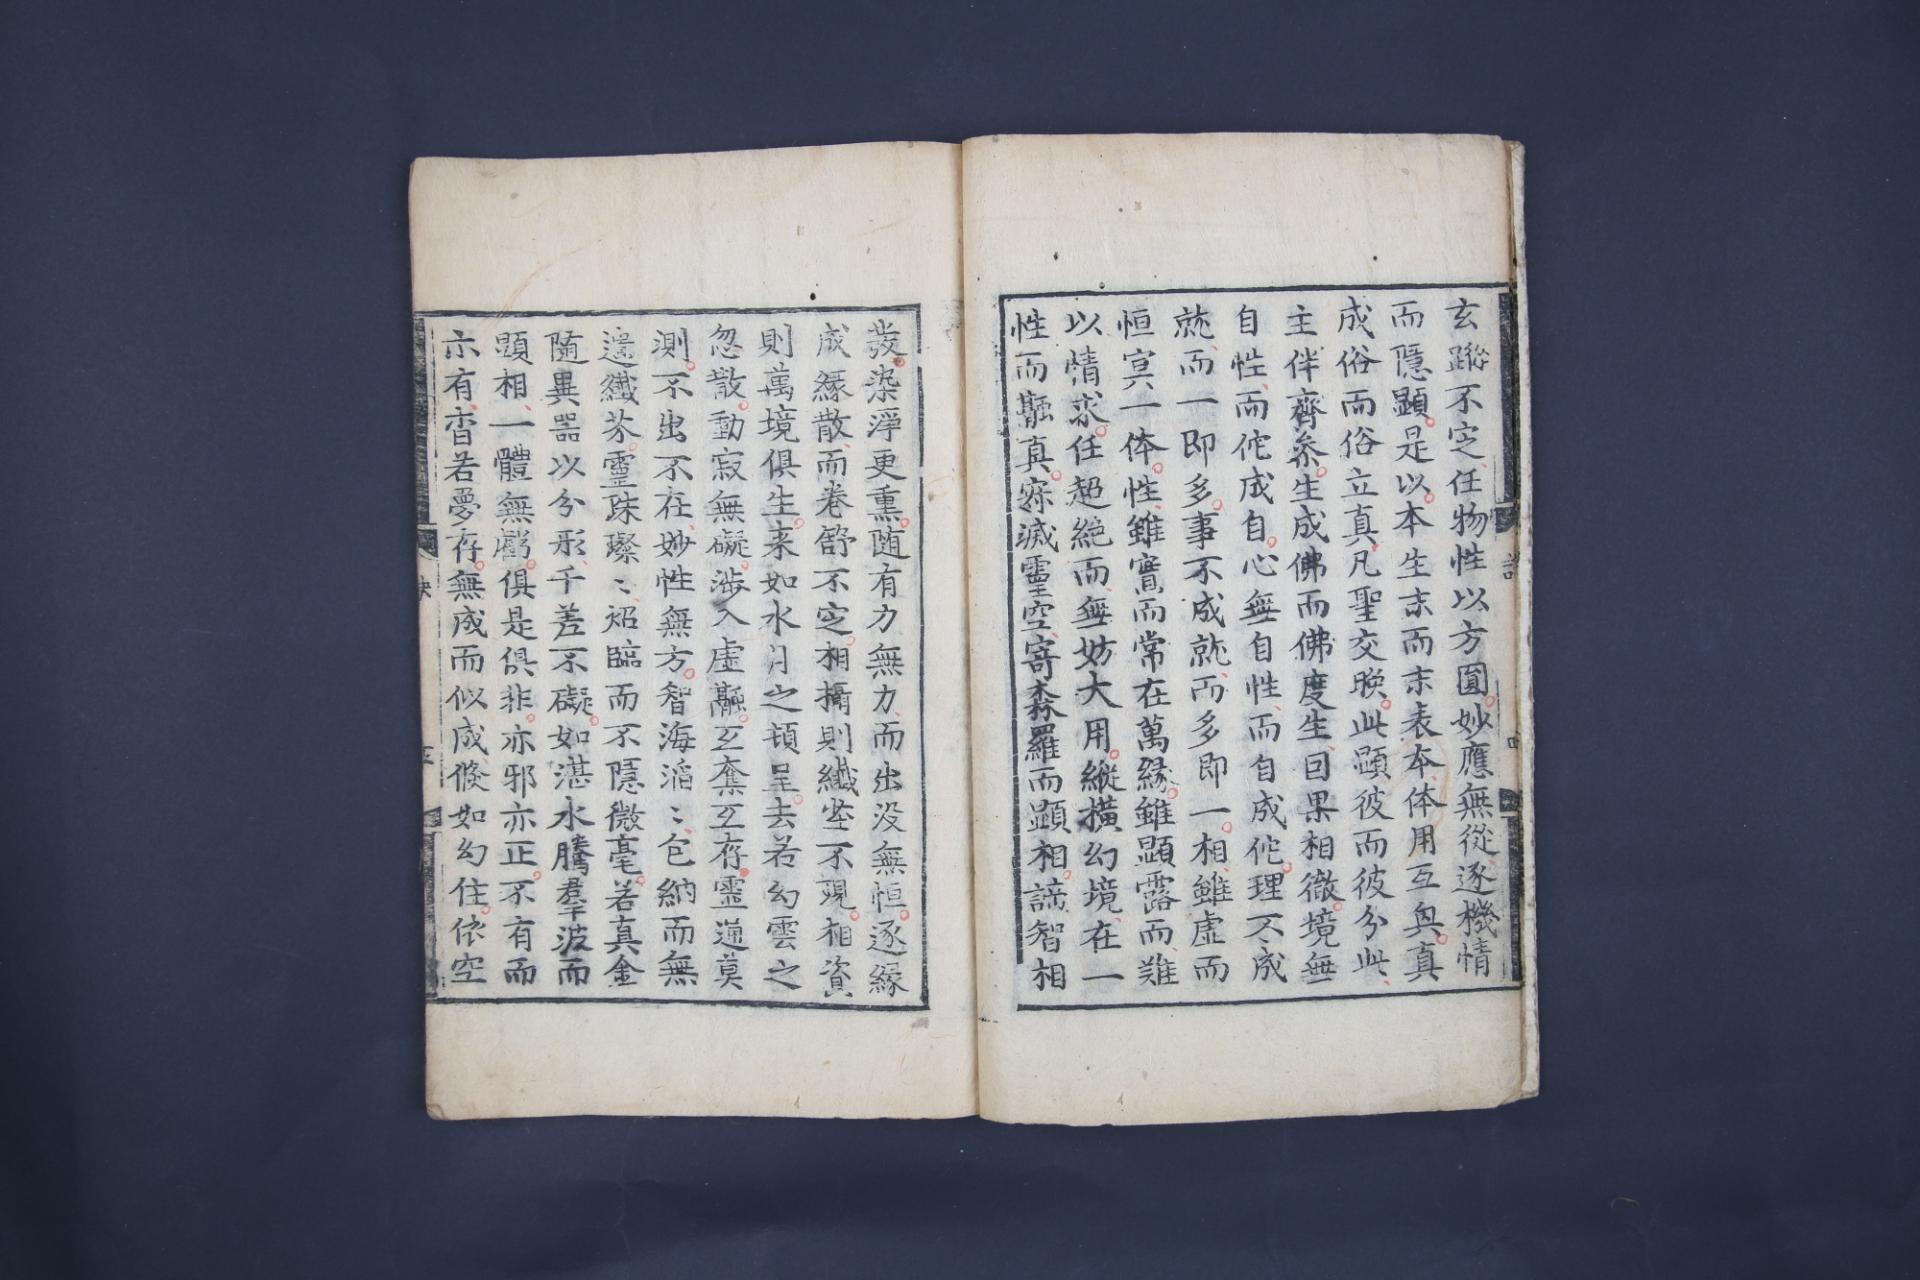 玄蹤不定任物性以方圓妙應無從逐機情
而隱顯是以本生末而末表本体用互興真
成俗而俗立真凡聖交暎此顯彼而彼分此
主伴齊叅生成佛而佛度生囙果相徹境無
自性而佗成自心無自性而自成佗理不成
就而一即多事不成就而多即一相雖虛而
恒冥一体性雖實而常在萬緣雖顯露而難
以情求任超絶而無妨大用縱横幻境在一
性而融真寂滅靈空寄森羅而顯相諦智相
發染淨更熏随有力無力而出没無恒逐緣
成緣散而卷舒不定相攝則纎塵不現相資
則萬境俱生来如水月之頓呈去若幻雲之
忽散動寂無礙渉入虛融互奪互存靈通莫
測不出不在妙性無方智海滔〻包納而無
遺纎芥靈珠璨〻炤臨而不隱微毫若真金
隨異噐以分形千差不礙如湛水騰羣波而
顕相一體無虧俱是俱非亦邪亦正不有而
示有杳若夢存無成而似成倐如幻住依空